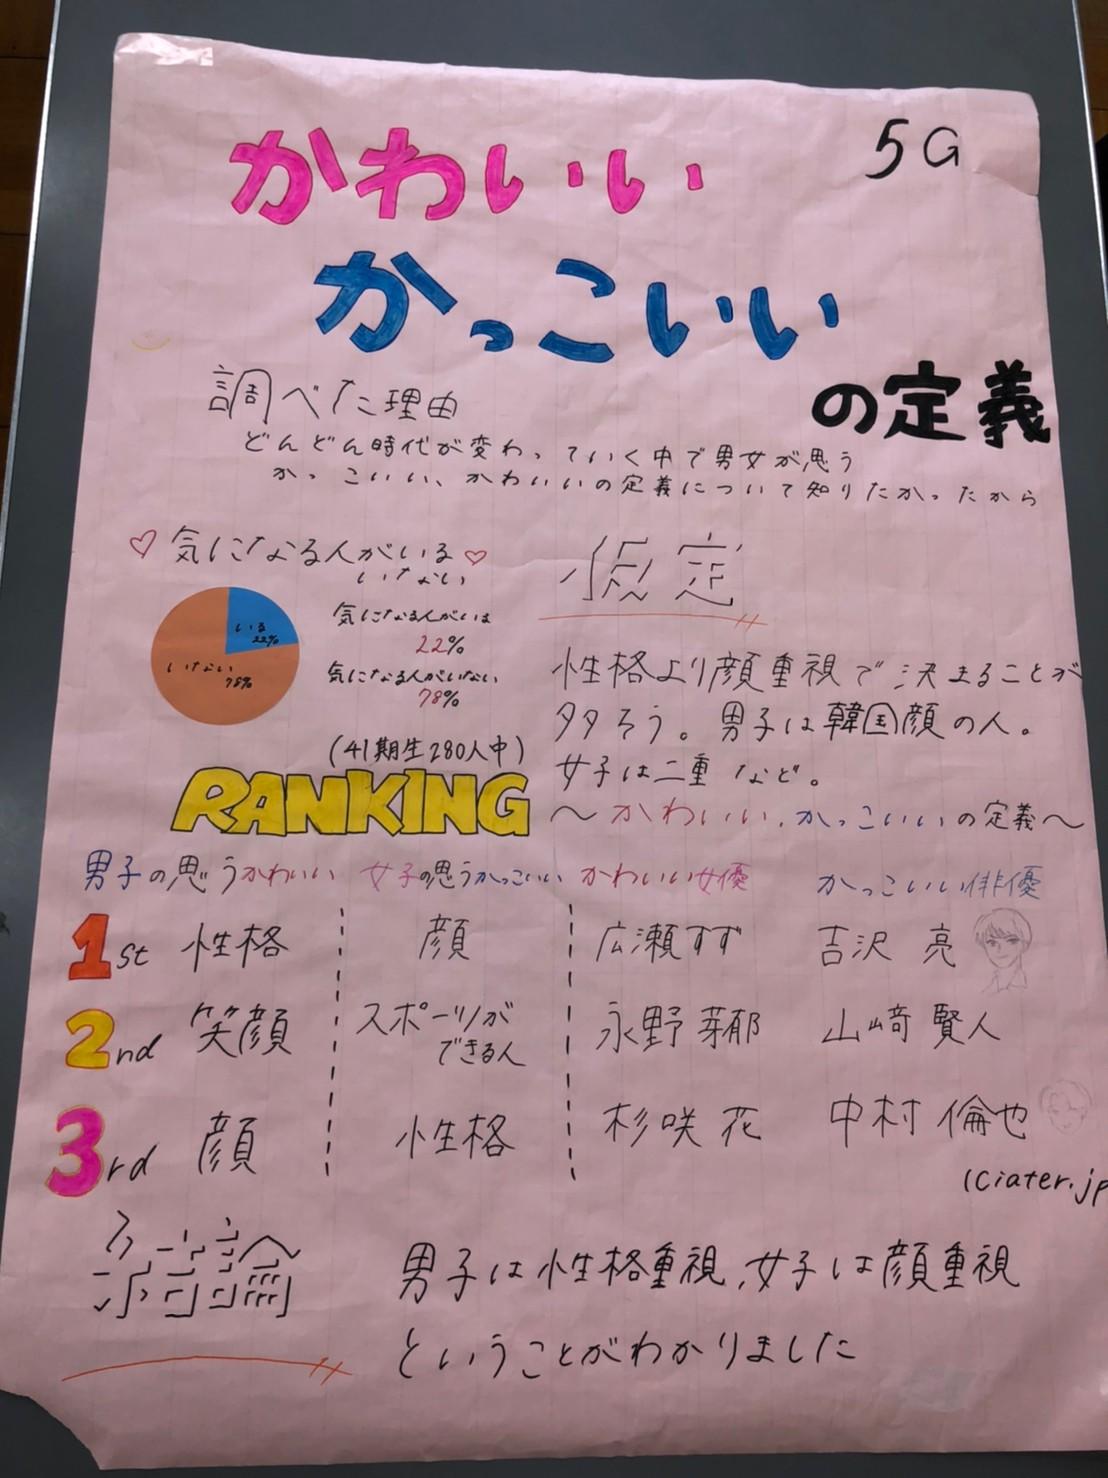 5G
かわいい
かっこいい
の定義
調べた理由
どんどん時代が変わっていく中で男女が思う
かっこいい、かわいいの定義について知りたかったから
♡気になる人がいる♡
いない
いる
22%
いない
78%
気になる人がいは
22%
気になる人がいない
78%
(41期生280人中)
仮定
性格より顔重視で決まることが
多そう。男子は韓国顔の人。
女子は二重など。
RANKING
〜かわいい、かっこいいの定義〜
男子の思うかわいい 女子の思うかっこいい かわいい女優 かっこいい俳優
1st 性格 顔 広瀬すず 吉沢 亮
2nd 笑顔 スポーツが 永野芽郁 山﨑賢人
できる人
3rd 顔 性格 杉咲 花 中村倫也
(Ciater.jp
結論
男子は性格重視、女子は顔重視
ということがわかりました